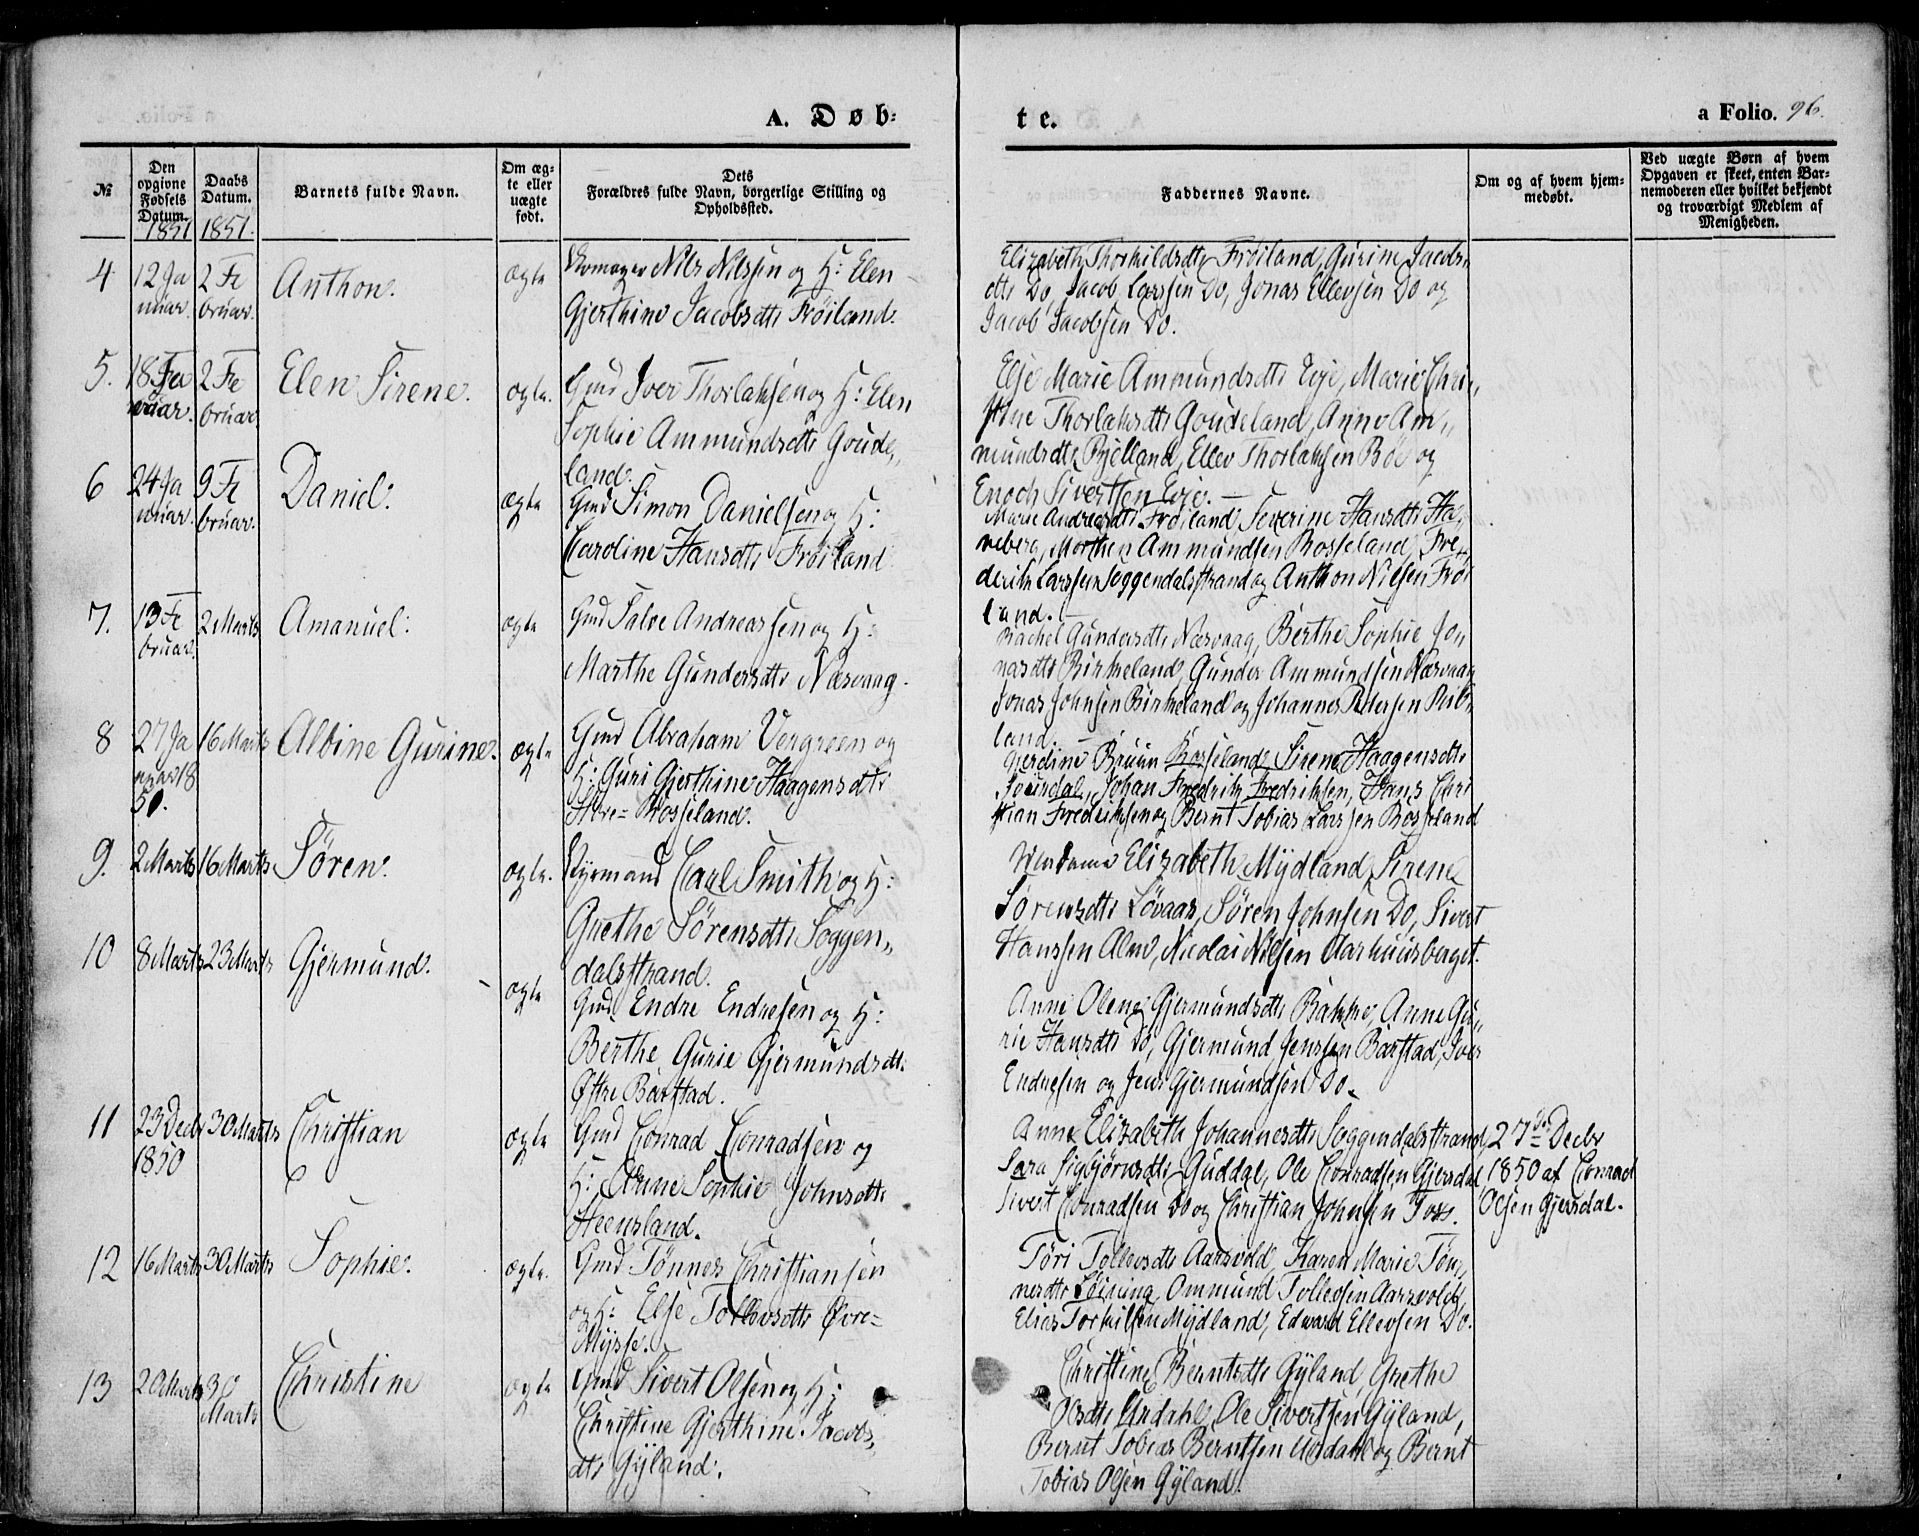 A. Døb-
te.
a Folio. 96.
№
Den
opgivne
Fødsels
Datum.
1851
Daabs
Datum.
1851.
Barnets fulde Navn.
Om æg-
te eller
uægte
født.
Dets
Forældres fulde Navn, borgerlige Stilling og
Opholdssted.
Faddernes Navne.
Om og af hvem hjem-
medøbt.
Ved uægte Børn af hvem
Opgaven er skeet, enten Bar-
nemoderen eller hvilket bekjendt
og troværdigt Medlem af
Menigheden.
4
12 Ja
nuar.
2 Fe
bruar.
Anthon.
ægte
Skomager Nils Nilsen og H: Elen
Gjerthine Jacobsdtr Frøiland.
Elizabeth Thorkildsdtr Frøiland, Gurine Jacobs
dtr Do, Jacob Larssen Do, Jonas Ellevsen Do og
Jacob Jacobsen Do.
5.
18
2 Fe
bruar.
Elen Sirene.
ægte.
Gmd Iver Thorlaksen og H: Elen
Sophie Ammundsdtr Goude„
land.
Else Marie Ammundsdtr Evje, Marie Chri„
stine Thorlaksdtr Goudeland, Anne Am„
mundsdtr Bjelland, Ellev Thorlaksen Bøe og
Enoch Sivertsen Evje.
6
24 Ja
nuar.
9 Fe
bruar.
Daniel.
ægte
Gmd Simon Danielsen og H:
Caroline Hansdtr Frøiland
Marie Andreasdtr Frøiland, Severine Hansdtr Ha„
neberg, Morthen Ammundsen Rosseland, Fre„
derik Larssen Soggendalsstrand og Anthon Nilsen Frøi
land.
7.
13 Fe
bruar.
2 Marts
Amanuel.
ægte
Gmd Salve Andreassen og H:
Marthe Gundersdtr Næsvaag.
Rachel Gundersdtr Næsvaag, Berthe Sophie Jo„
nasdtr Birkeland, Gunder Ammundsen Næsvaag
Jonas Johnsen Birkeland og Johannes Petersen
land.
8
27 Ja
nuar 18
50.
16 Marts
Albine Gurine.
ægte
Gmd Abraham Vergreen og
H: Guri Gjerthine Haagensdtr
Store= Rosseland.
Gierdine Bruun Rosseland, Sirene Haagensdtr
Johan Fredrik Fredriksen, Hans Chri
stian Frederiksen og Bernt Tobias Larssen Rosseland
9.
2 Marts
16 Marts
Søren.
ægte.
Styrmand Carl Smith og H:
Grethe Sørensdtr Soggen„
dalsstrand.
Madame Elizabeth Mydland, Sirene
Sørensdtr Løvaas, Søren Johnsen Do, Sivert
Hanssen Alm, Nicolai Nilsen Aarhuusberget.
10
8 Marts
23 Marts
Gjermund.
ægte
Gmd Endre Endresen og H:
Berthe Gurie Gjermundsdtr
Østre Barstad.
Anne Olene Gjermundsdtr Bakke, Anne Gu„
rie Hansdtr Do, Gjermund Jenssen Barstad, Iver
Endresen og Jens Gjermundsen Do.
11
23 Decbr
1850
30 Marts
Christian
ægte
Gmd Conrad Conradsen og
H: Anne Sophie Johnsdtr
Steensland.
Anne Elizabeth Johannesdtr Soggendalsstrand,
Sara Sigbjørnsdtr Guddal, Ole Conradsen Gjersdal,
Sivert Conradsen Do og Christian Johnsen Foss.
27de Decbr
1850 af Conrad
Olsen Gjersdal.
12
16 Marts
30 Marts
Sophie.
ægte.
Gmd Tønnes Christiansen
og H: Else Tollevsdtr Øvre=
Mysse.
Tøri Tollevsdtr Aarsvold, Karen Marie Tøn„
nesdtr Løining, Ommund Tollevsen Aarsvold,
Elias Torkilsen Mydland, Edward Ellevsen Do.
13
20 Marts
30
Marts
Christine
ægte
Gmd Sivert Olsen og H:
Christine Gjerthine Jacobs„
dtr Gyland.
Christine Berntsdtr Gyland, Grethe
Olsdtr Urdahl, Ole Sivertsen Gyland,
Bernt Tobias Berntsen Urdahl og Bernt
Tobias Olsen Gyland.